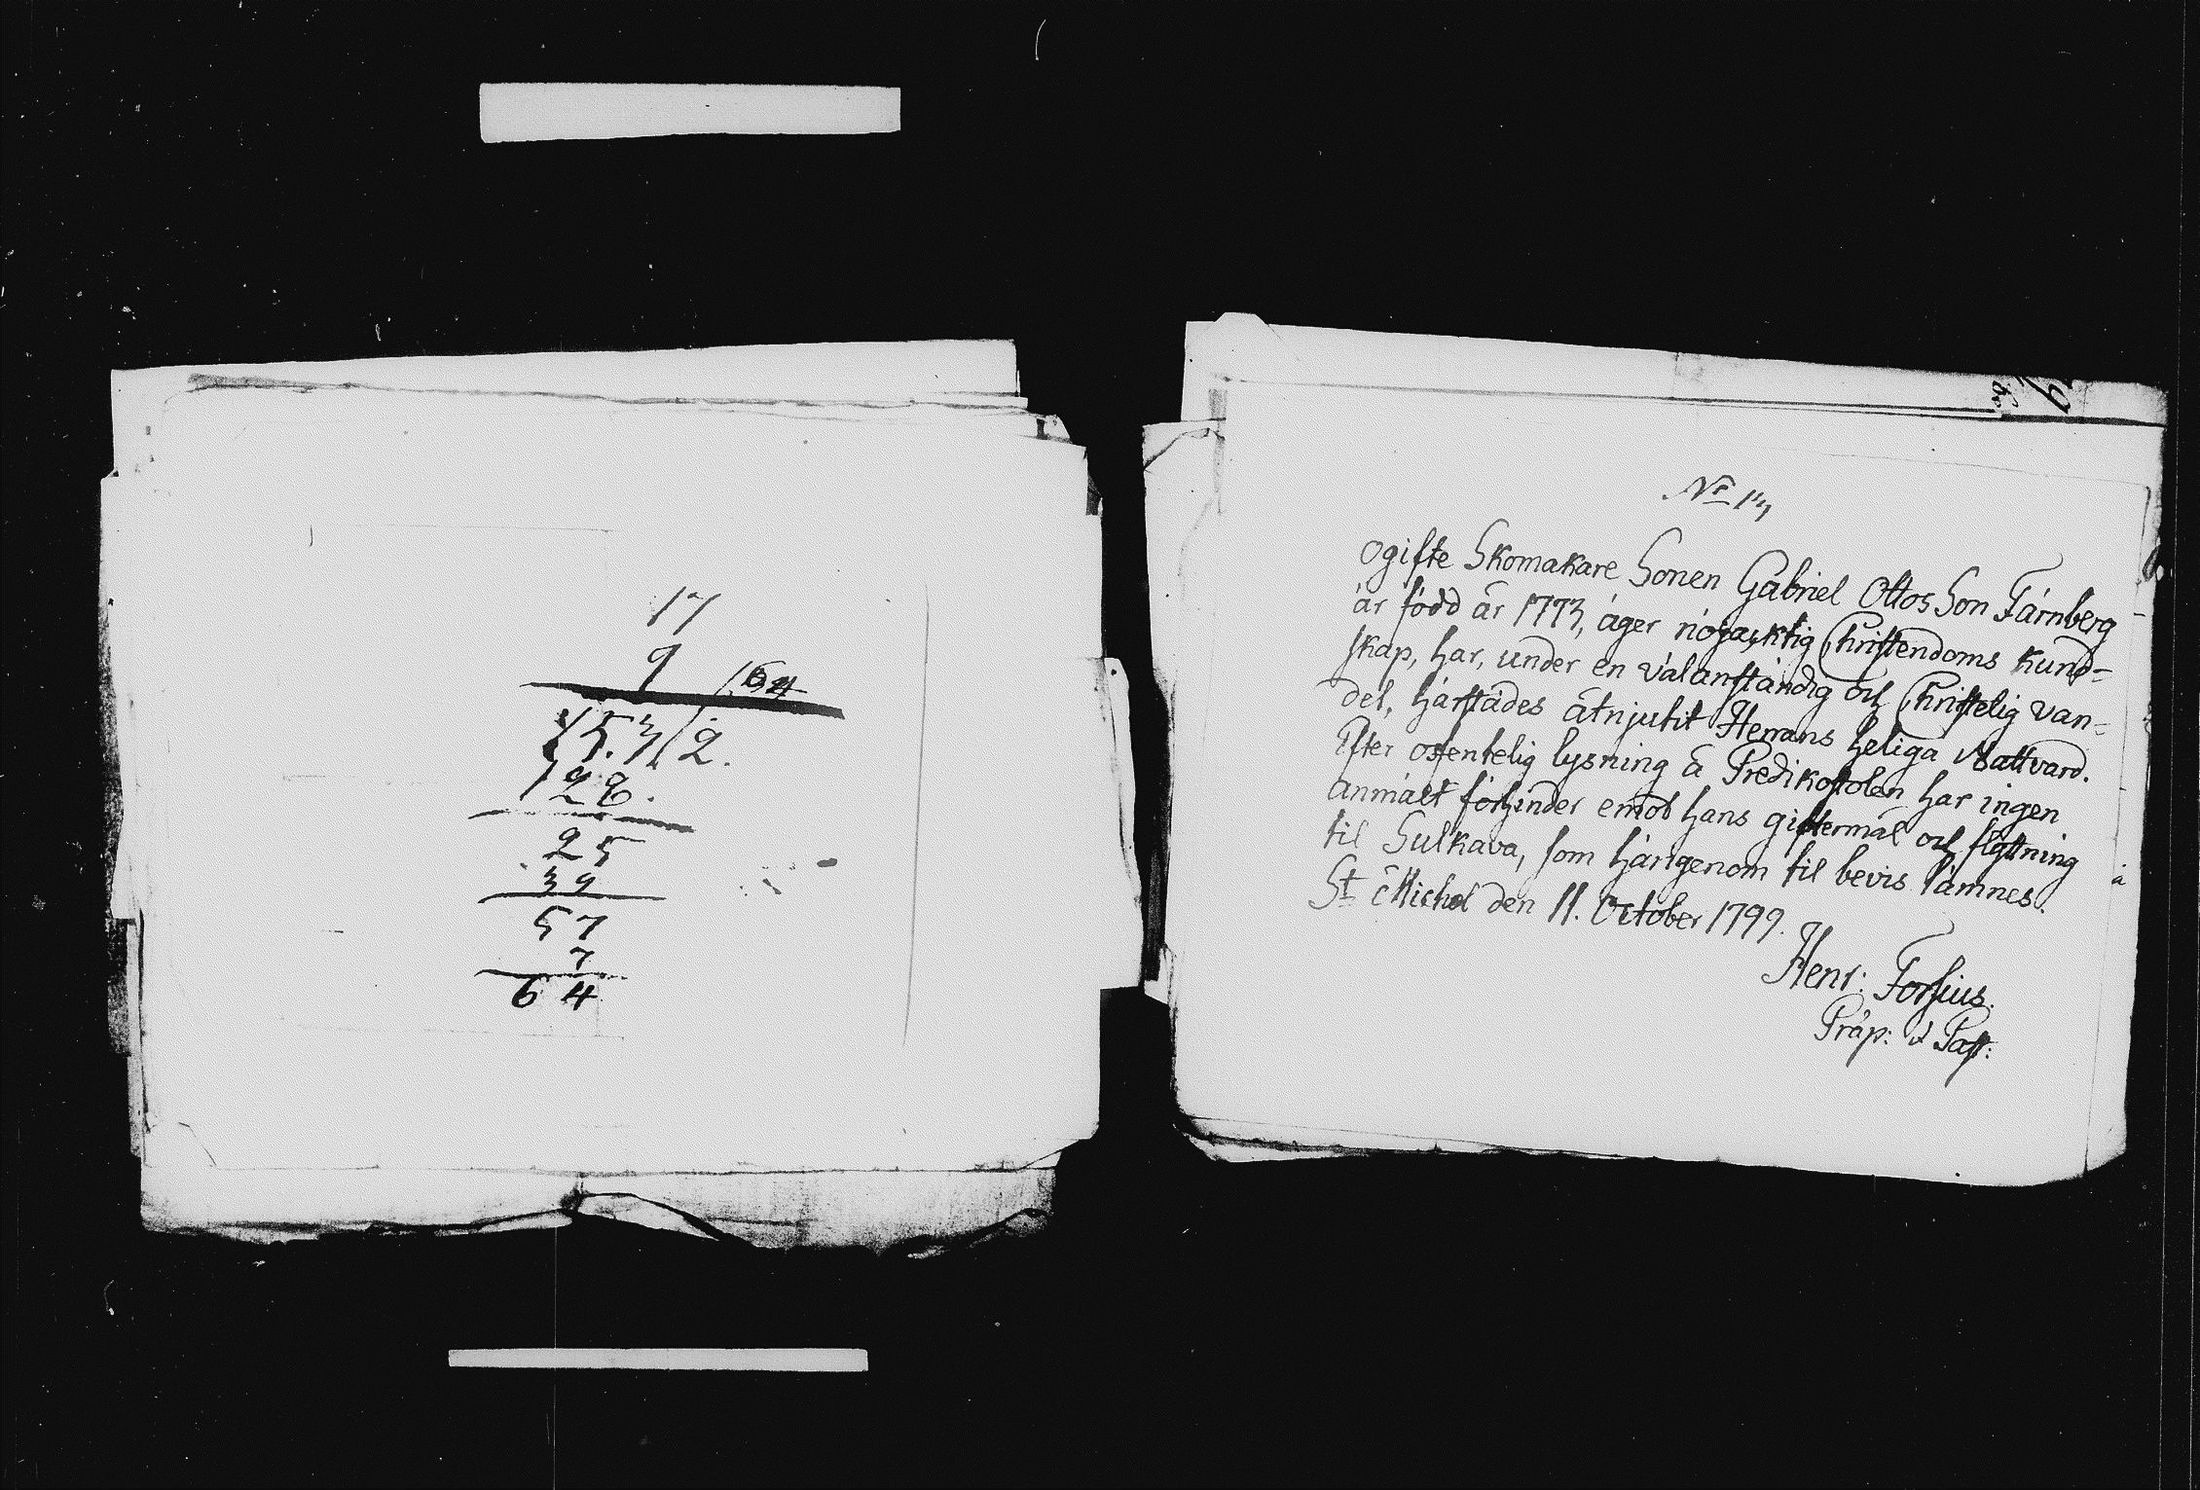 17
9
64
153/2.
128.
25
39
57
7
64
No 13
Ogifte Skomakare Sonen Gabriel Ottos Son Färnberg
är född år 1773, äger nögacktig Christendoms kund=
skap, har, under en välanständig och Christelig van=
del, härstädes åtnjutit Herrans heliga Nattvard.
Efter offentelig lysning å Predikostolen har ingen
anmält förhinder emot hans giftermål och flyttning
til Sulkava, som härigenom til bevis lämnes.
St Michel den 11. October 1799.
Henr: Forsius.
Präp: & Past: